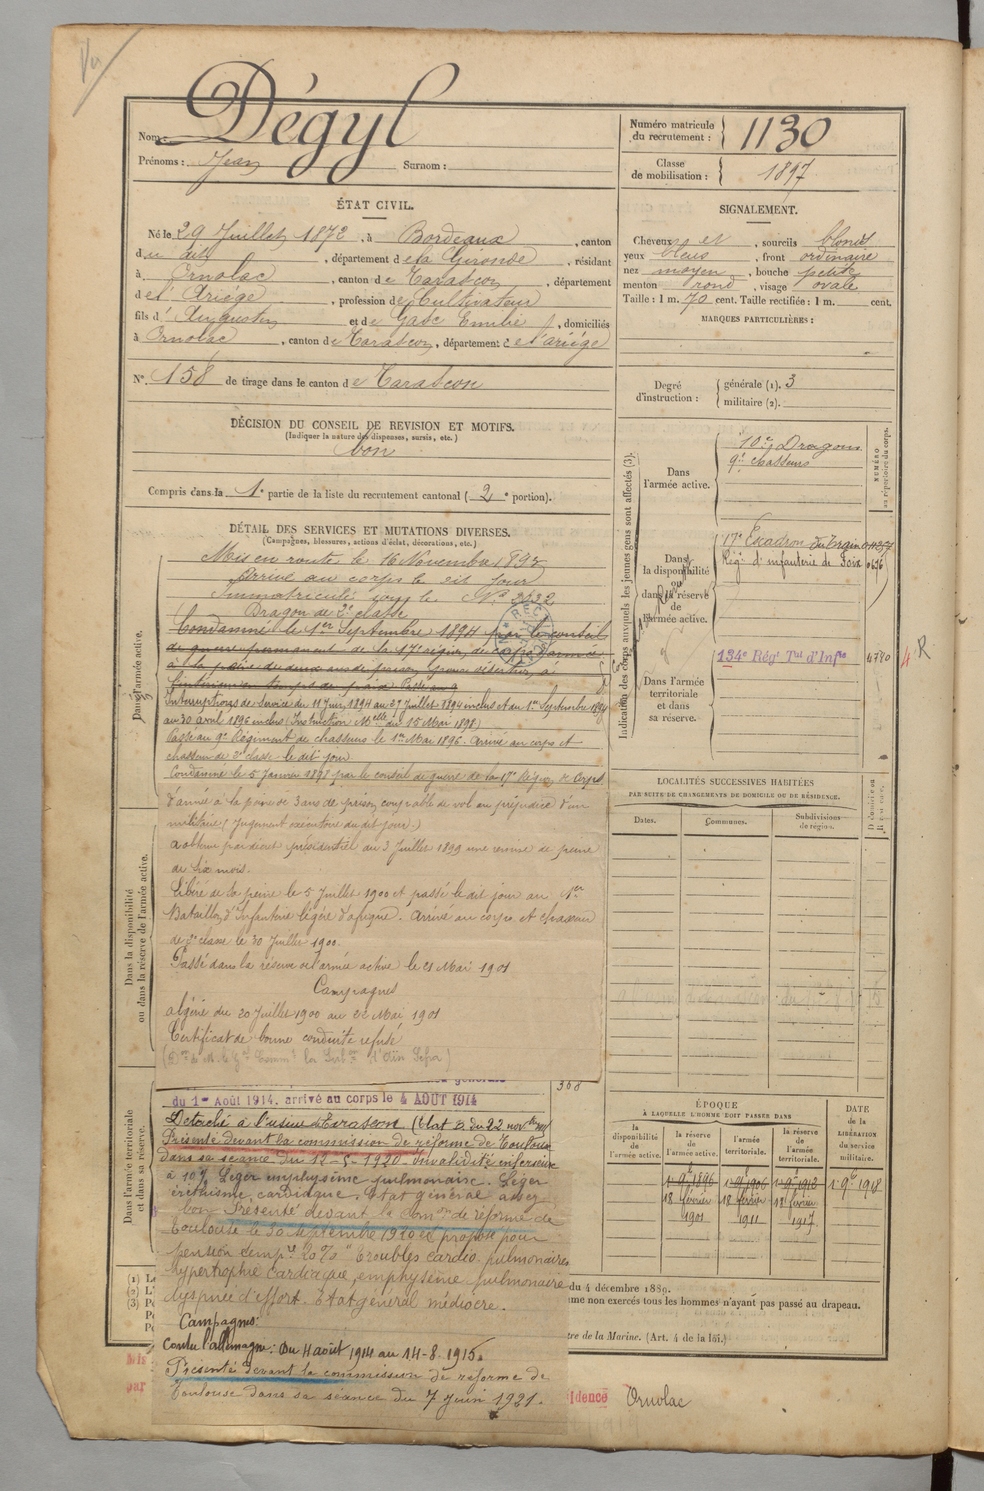 Nom : Dégyl
Prénoms : Jean Surnom :
Numéro matricule du recrutement : 1130
Classe de mobilisation : 1897
ÉTAT CIVIL.
Né le 29 Juillet 1872, à Bordeaux, canton
du dit, département de la Gironde, résidant
à Ornolac, canton de Tarascon, département
de l'Ariége, profession de Cultivateur
fils d'Augustin et de Gasc Emilie, domiciliés
à Ornolac, canton de Tarascon, département de l'ariége
N° 158 de tirage dans le canton de Tarascon
DÉCISION DU CONSEIL DE REVISION ET MOTIFS.
(Indiquer la nature des dispenses, sursis, etc.)
bon
Compris dans la 1e partie de la liste du recrutement cantonal (2e portion).
DÉTAIL DES SERVICES ET MUTATIONS DIVERSES.
(Campagnes, blessures, actions d'éclat, décorations, etc.)
Mis en route le 16 Novembre 1893
Arrivé au corps le dit jour
Immatriculé sous le N° 3632
Dragon de 2e classe
Condamné le 1er Septembre 1894 par le conseil
de guerre permanent de la 17e région de corps d'armée
à la peine de deux ans de prison désertion à
l'intérieur en temps de paix
Interruptions de Service du 11 Juin 1894 au 27 Juillet 1894 inclus et du 1er Septembre 1894
au 30 avril 1896 inclus (Instruction Melle du 15 Mai 1898)
Passé au 9e Régiment de chasseurs le 1er Mai 1896. Arrivé au corps et
chasseur de 2e classe le dit jour
Condamné le 5 Janvier 1897 par le conseil de guerre de la 17e Région de Corps
d'armée à la peine de 3 ans de prison, coupable de vol au préjudice d'un
militaire (Jugement exécutoire du dit jour.)
a obtenu par décret présidentiel du 3 Juillet 1899 une remise de peine
de six mois.
Libéré de sa peine le 5 Juillet 1900 et passé le dit jour au 1er
Bataillon d'Infanterie légère d'afrique. Arrivé au corps et chasseur
de 2e classe le 30 Juillet 1900.
Passé dans la réserve de l'armée active le 21 Mai 1901
Campagnes
algérie du 20 Juillet 1900 au 21 Mai 1901
Certificat de bonne conduite refusé
du 1er Août 1914. arrivé au corps le 4 AOUT 1914
368
Détaché à l'usine de Tarascon (Etat B du 22 nov
Présenté devant la commission de réforme de Toulouse
dans sa séance du 12-5-1920. Invalidité inférieure
à 10% Léger emphysème pulmonaire. Léger
éréthisme cardiaque. Etat général assez
bon Présenté devant la Comon de réforme de
Toulouse le 30 septembre 1920 et proposé pour
pension tempre 20% "Troubles cardio pulmonaires
hypertrophie cardiaque, emphysème pulmonaire
dyspnée d'effort. Etat général médiocre.
Campagnes:
Contre l'allemagne: Du 4 août 1914 au 14-8-1915.
Présenté devant la commission de réforme de
Toulouse dans sa séance du 7 juin 1921.
Dans l'armée active.
Dans la disponibilité ou dans la réserve de l'armée active.
Dans l'armée territoriale et dans sa réserve.
SIGNALEMENT.
Cheveux et, sourcils blonds
yeux bleus, front ordinaire
nez moyen, bouche petite
menton rond, visage ovale
Taille : 1 m. 70 cent. Taille rectifiée : 1 m. cent.
MARQUES PARTICULIÈRES :
Degré d'instruction : générale (1). 3
militaire (2).
Indication des corps auxquels les jeunes gens sont affectés (3).
NUMÉRO au répertoire du corps.
Dans l'armée active.
10e Dragons
9e chasseurs
Dans la disponibilité ou dans la réserve de l'armée active.
17e Escadron du train
Régt d'infanterie de Foix 0636
Dans l'armée territoriale et dans sa réserve.
134e Régt Tal d'Infie 4780
R
LOCALITÉS SUCCESSIVES HABITÉES
PAR SUITE DE CHANGEMENTS DE DOMICILE OU DE RÉSIDENCE.
Dates. Communes. Subdivisions de région. Domicile ou Résidence.
ÉPOQUE
À LAQUELLE L'HOMME DOIT PASSER DANS
DATE de la LIBÉRATION du service militaire.
la disponibilité de l'armée active. la réserve de l'armée active. l'armée territoriale. la réserve de l'armée territoriale.
1 9bre 1896 1 9bre 1906 1 9bre 1912 1 9bre 1918
18 février 18 février 18 février
1901 1911 1917
(1)
(2)
(3)
du 4 décembre 1889.
me non exercés tous les hommes n'ayant pas passé au drapeau.
tre de la Marine. (Art. 4 de la loi.)
Mis
par
idence Ornolac